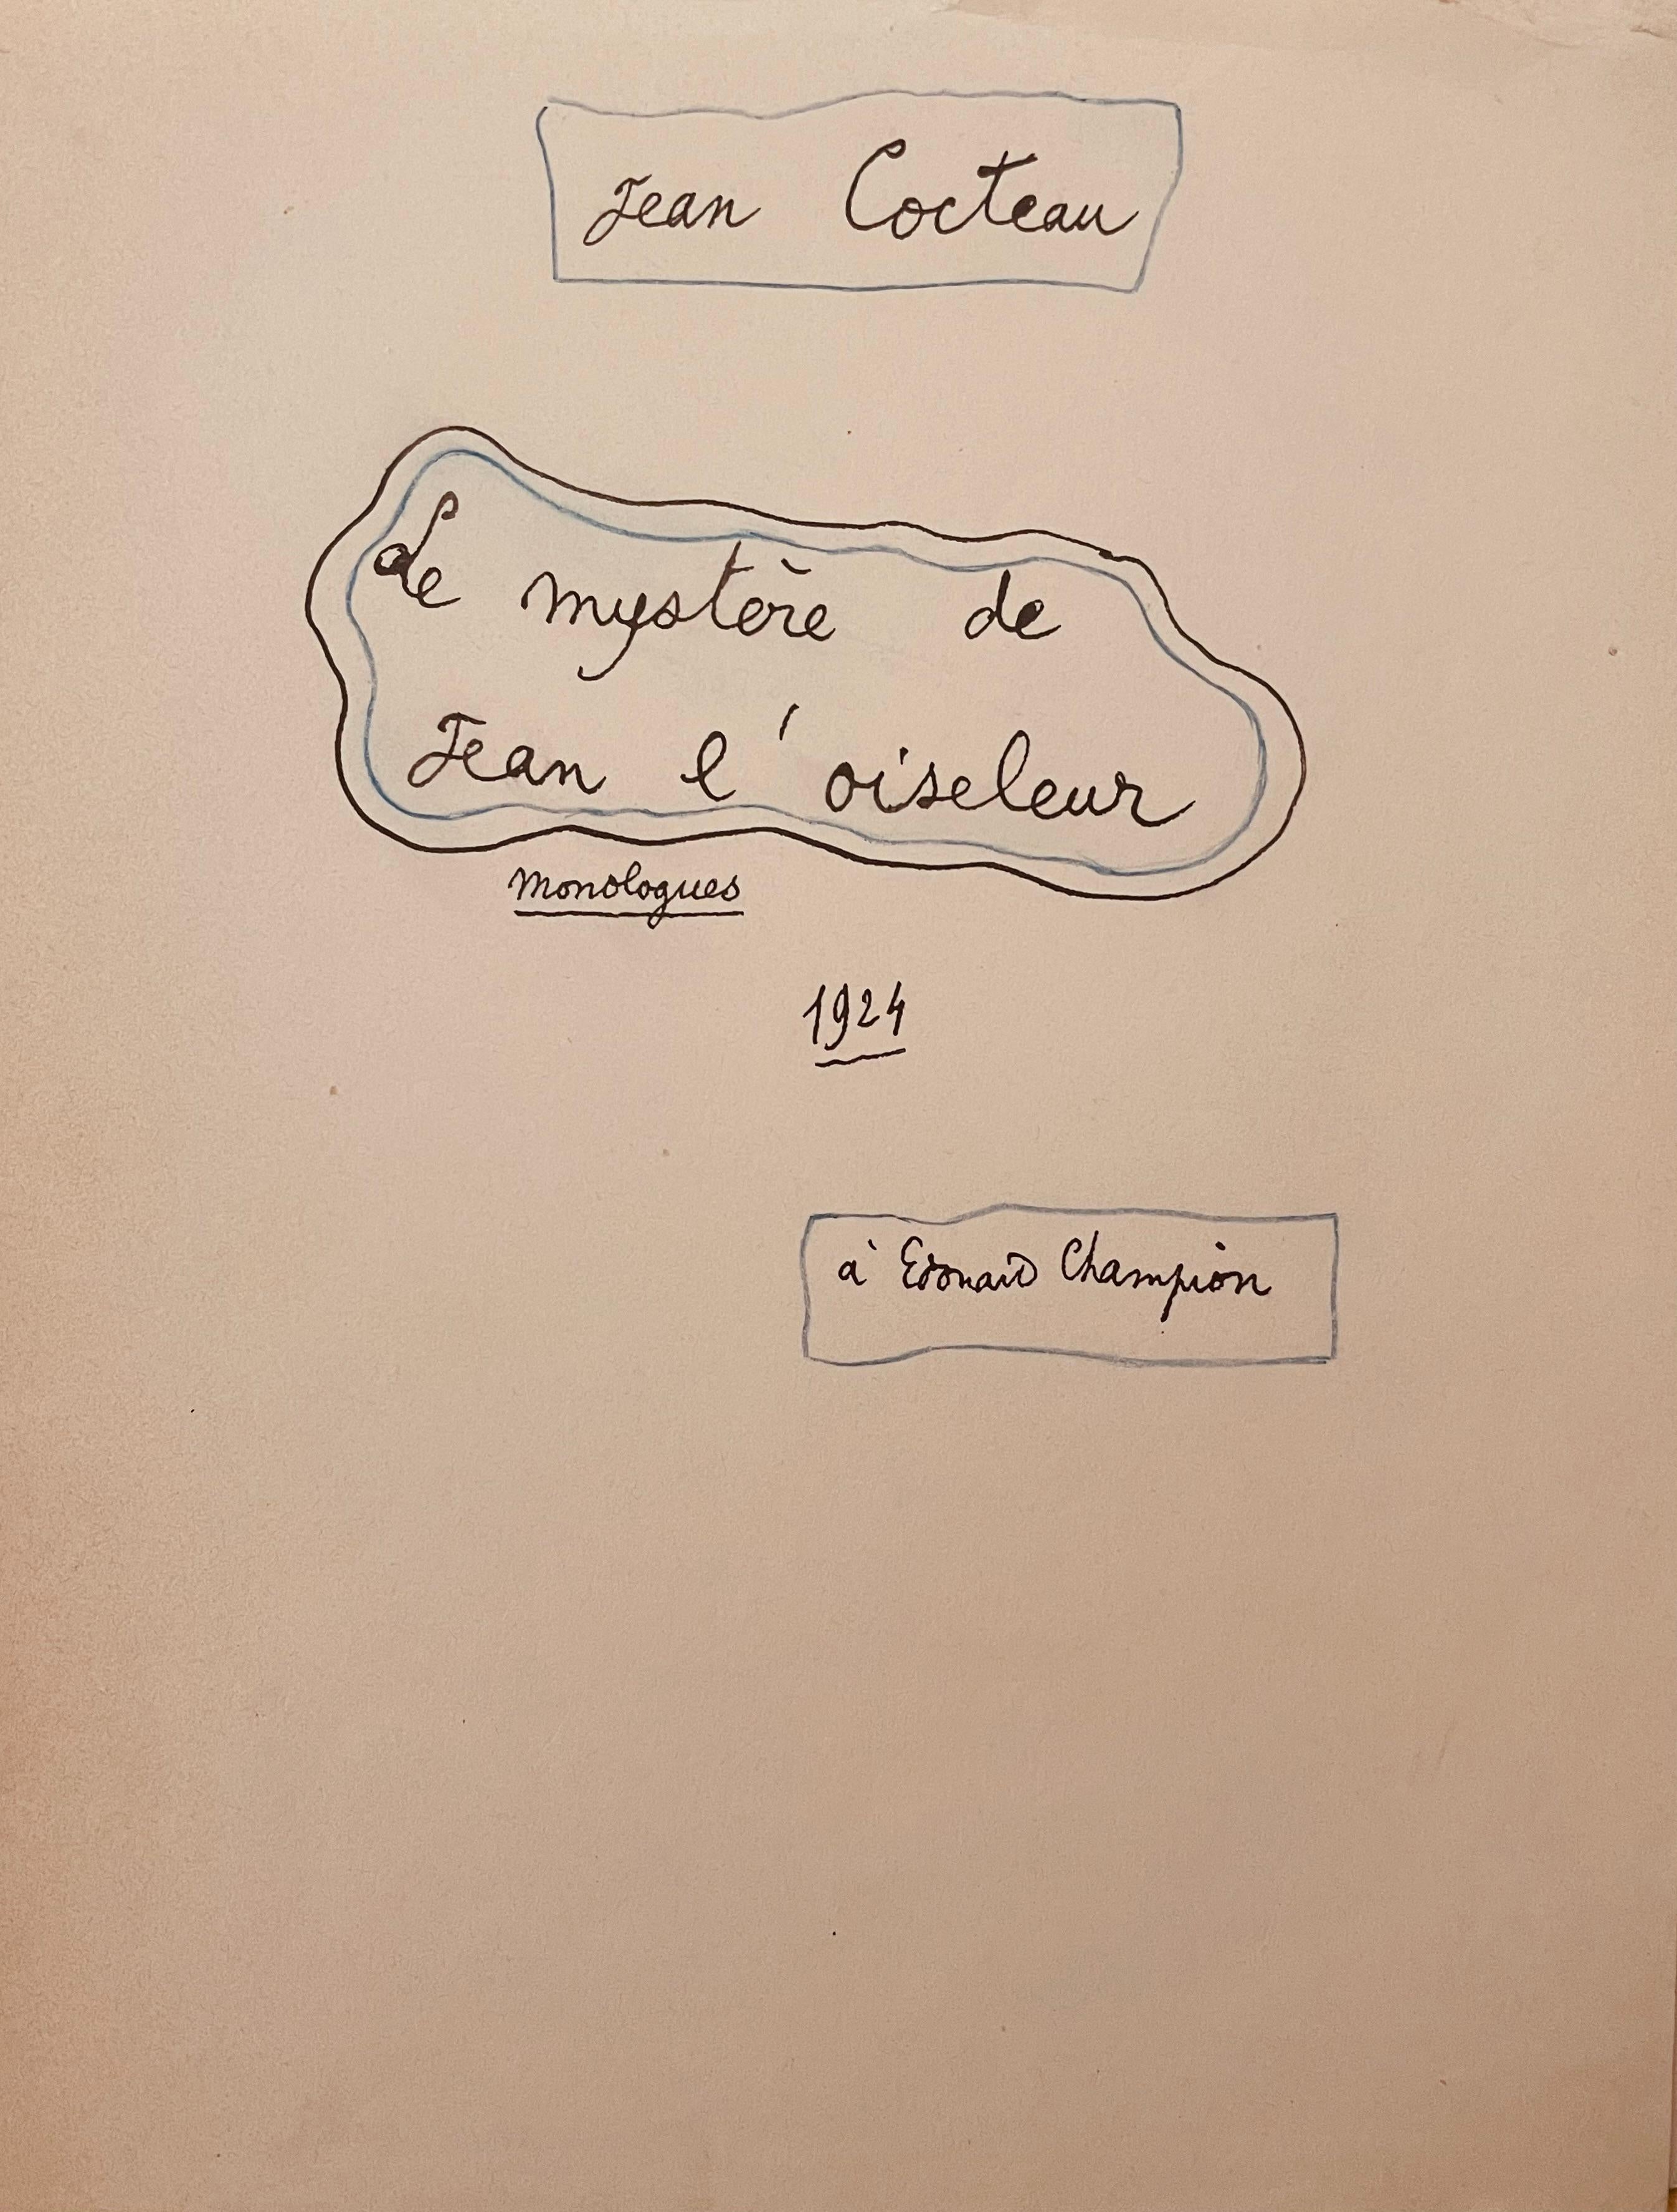 Jean Cocteau
Le mystère de
Jean l'oiseleur
Monologues
1924
à Edouard Champion